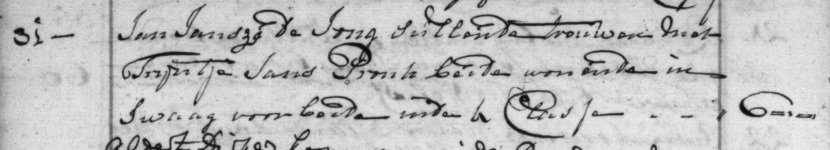 31 - Jan Jansz de Jong sullende trouwen met
Trijntje Jans Pronk beide wonende in
Swaag voor beide inde 4 Classe - - , 6 - -